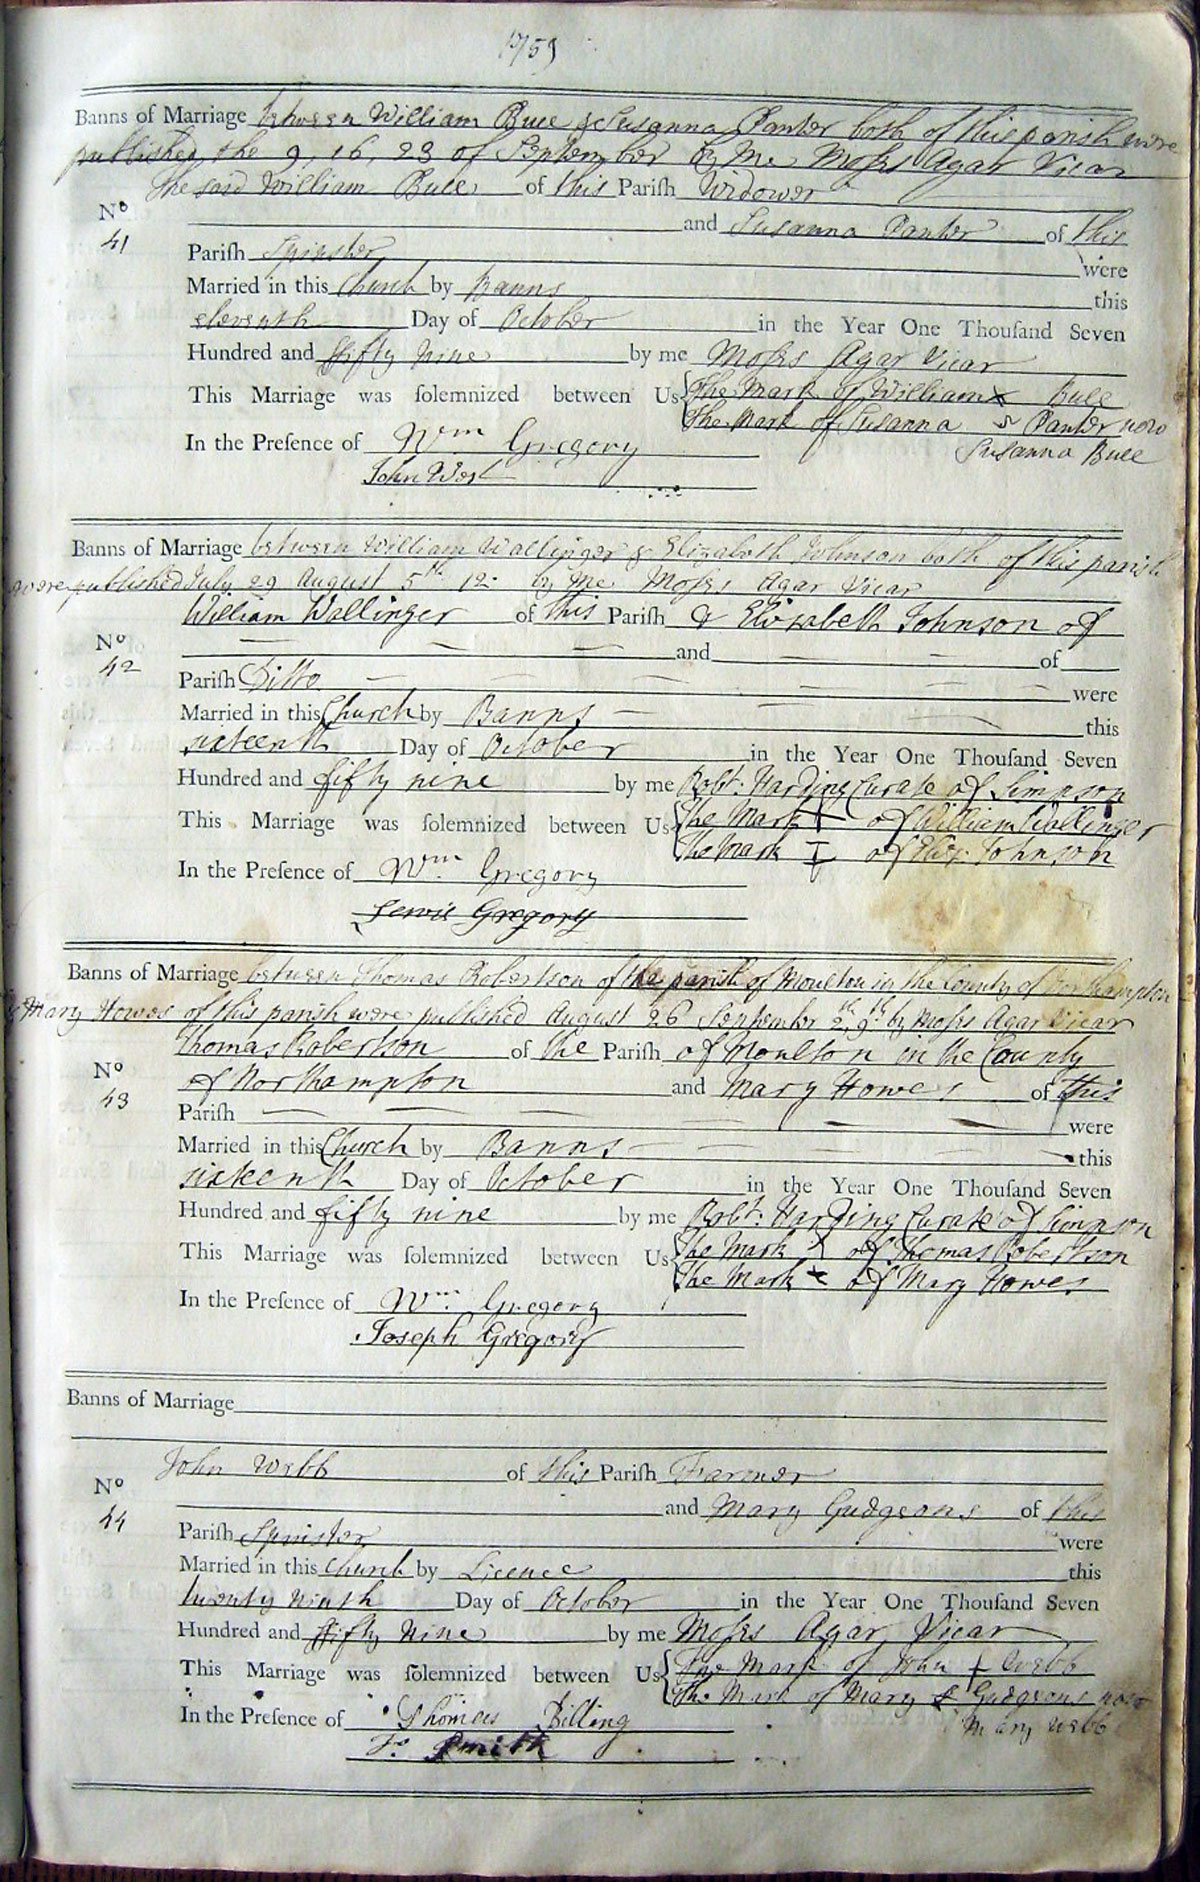 1759
Banns of Marriage between William Bull & Susanna Panter both of this parish were
published the 9, 16, 23 of September by me Moses Agar Vicar
The said William Bull of this Pariſh Widower
No
41
and Susanna Panter of this
Pariſh Spinster were
Married in this Church by Banns this
eleventh Day of October in the Year One Thouſand Seven
Hundred and fifty nine by me Moses Agar Vicar
This Marriage was ſolemnized between Us The Mark of William X Bull
The Mark of Susanna Panter now
Susanna Bull
In the Preſence of Wm Gregory
John West
Banns of Marriage between William Wallinger & Elizabeth Johnson both of this parish
were published July 29 August 5th 12 by me Moses Agar Vicar
William Wallinger of this Pariſh & Elizabeth Johnson of
No
42
and of
Pariſh Ditto were
Married in this Church by Banns this
sixteenth Day of October in the Year One Thouſand Seven
Hundred and fifty nine by me Robt. Harding Curate of Simpson
This Marriage was ſolemnized between Us The Mark + of William Wallinger
The Mark I of Eliz. Johnson
In the Preſence of Wm. Gregory
Lewis Gregory
Banns of Marriage between Thomas Robertson of the parish of Moulton in the County of Northampton
& Mary Howes of this parish were published August 26 September 2d, 9th by Moses Agar Vicar
Thomas Robertson of the Pariſh of Moulton in the County
No
43
of Northampton and Mary Howes of this
Pariſh were
Married in this Church by Banns this
sixteenth Day of October in the Year One Thouſand Seven
Hundred and fifty nine by me Robt. Harding Curate of Simpson
This Marriage was ſolemnized between Us The Mark of Thomas Robertson
The Mark + of Mary Howes
In the Preſence of Wm. Gregory
Joseph Gregory
Banns of Marriage
John Webb of this Pariſh Farmer
No
44
and Mary Gudgeons of this
Pariſh Spinster were
Married in this Church by Licence this
twenty ninth Day of October in the Year One Thouſand Seven
Hundred and fifty Nine by me Moses Agar Vicar
This Marriage was ſolemnized between Us The Mark of John + Webb
The Mark of Mary Gudgeons now
Mary Webb
In the Preſence of Thomas Billing
Jo Smith